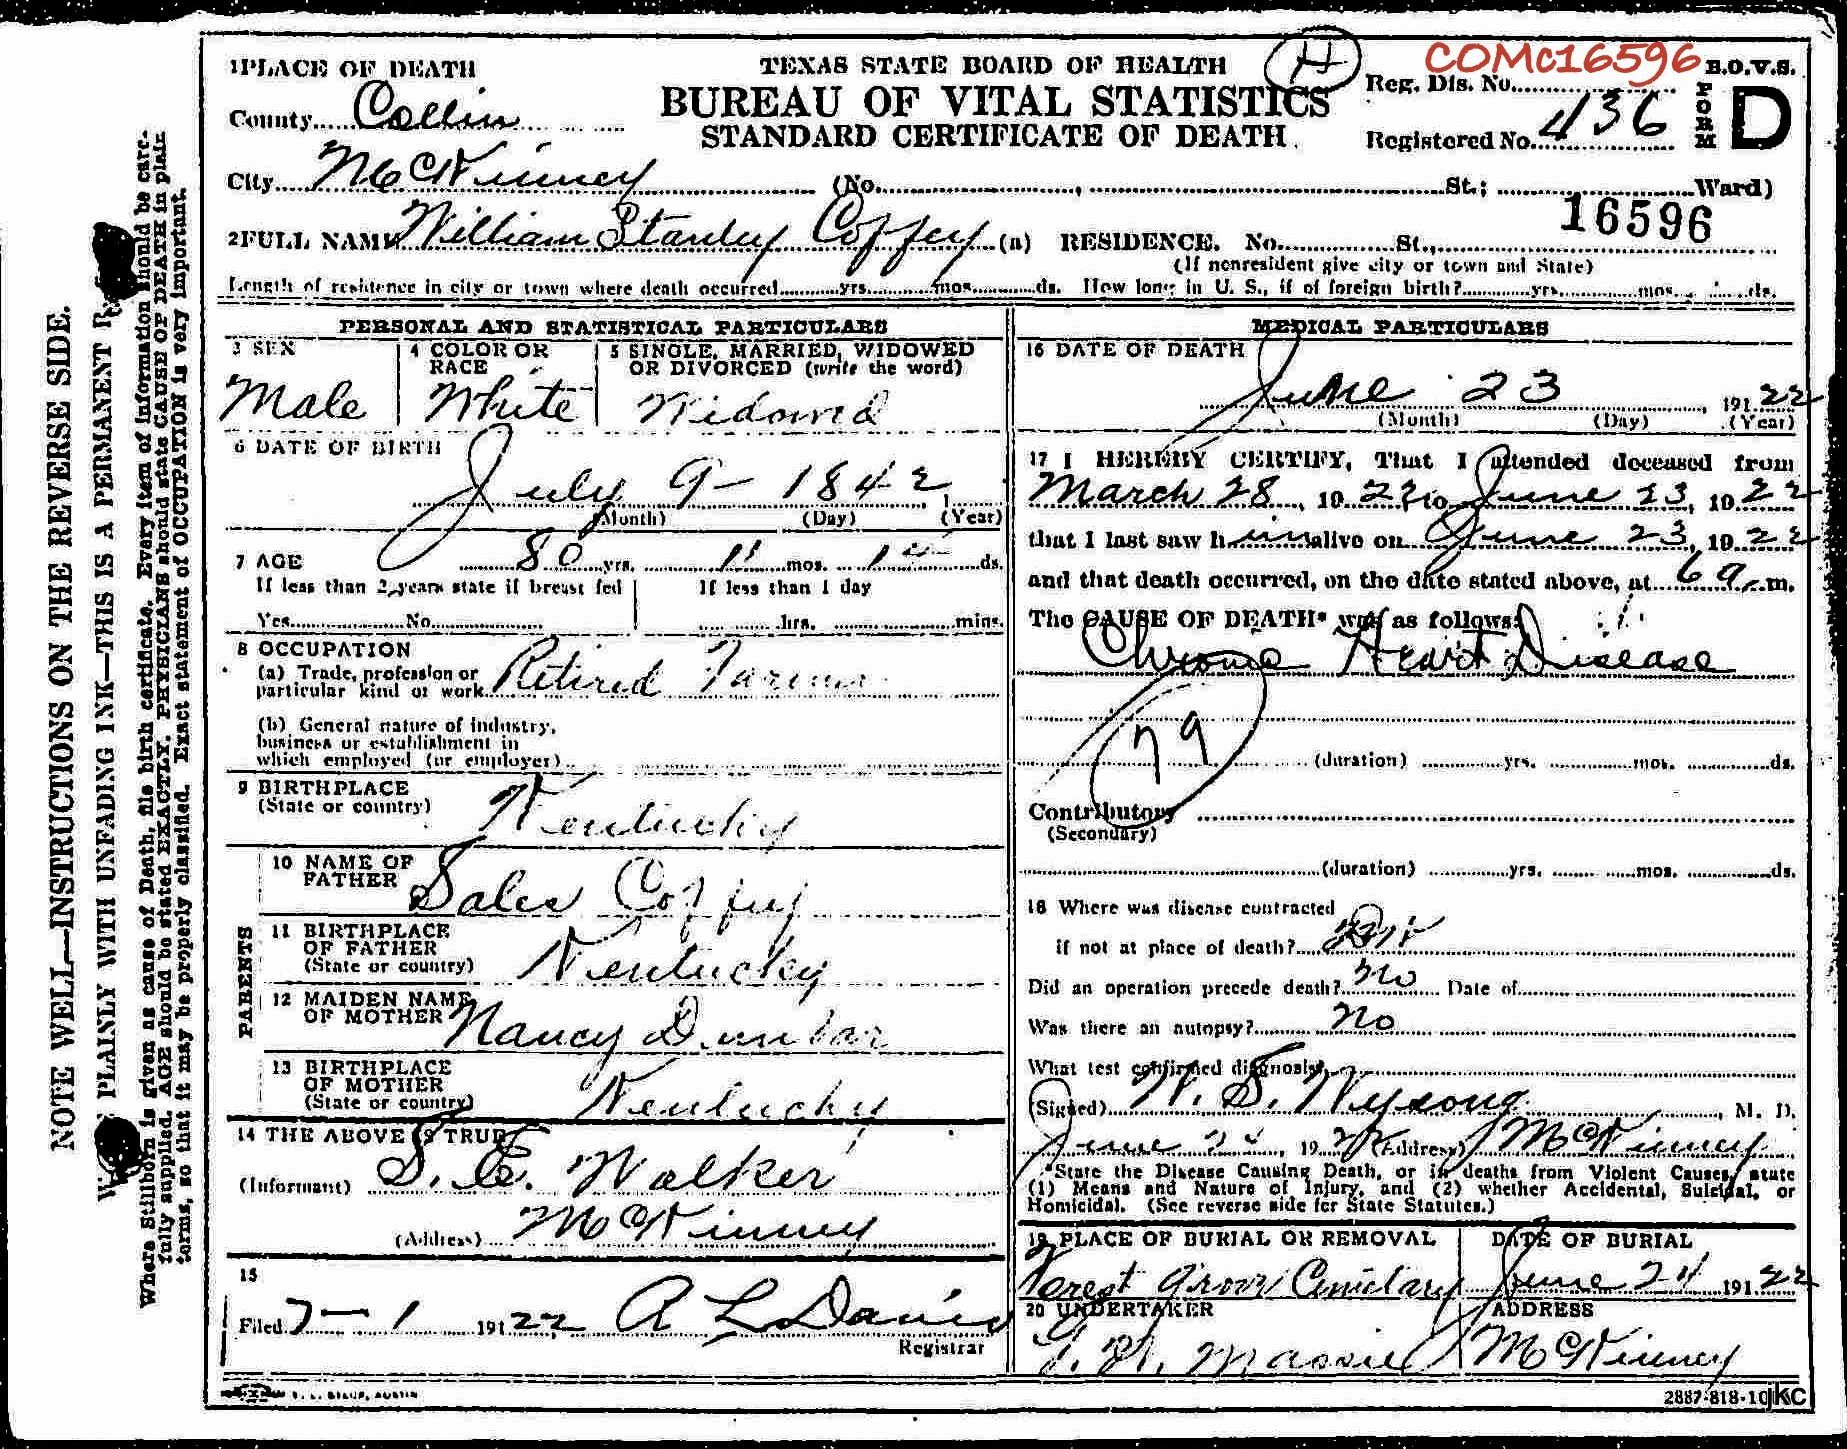 COMc16596
1 PLACE OF DEATH
TEXAS STATE BOARD OF HEALTH
H
Reg. Dis. No.
B.O.V.S.
County Collin
BUREAU OF VITAL STATISTICS
STANDARD CERTIFICATE OF DEATH.
Registered No. 436
FORM D
City McKinney (No. , St.; Ward)
16596
2 FULL NAME William Stanley Coffey (a) RESIDENCE. No. St.,
(If nonresident give city or town and State)
Length of residence in city or town where death occurred yrs. mos. ds. How long in U. S., if of foreign birth? yrs. mos. ds.
PERSONAL AND STATISTICAL PARTICULARS
3 SEX
Male
4 COLOR OR RACE
White
5 SINGLE, MARRIED, WIDOWED
OR DIVORCED (write the word)
Widowed
6 DATE OF BIRTH
July 9 - 1842
(Month) (Day) (Year)
7 AGE 80 yrs. 11 mos. ds.
If less than 2 years state if breast fed
Yes No
If less than 1 day
hrs. mins.
8 OCCUPATION
(a) Trade, profession or
particular kind of work Retired Farmer
(b) General nature of industry,
business or establishment in
which employed (or employer)
9 BIRTHPLACE
(State or country) Kentucky
PARENTS
10 NAME OF
FATHER Sales Coffey
11 BIRTHPLACE
OF FATHER
(State or country) Kentucky
12 MAIDEN NAME
OF MOTHER Nancy Dunbar
13 BIRTHPLACE
OF MOTHER
(State or country) Kentucky
14 THE ABOVE IS TRUE
(Informant) S. E. Walker
(Address) McKinney
15
Filed 7-1 191 22 A L Davis
Registrar
MEDICAL PARTICULARS
16 DATE OF DEATH
June 23 191 22
(Month) (Day) (Year)
17 I HEREBY CERTIFY, That I attended deceased from
March 28, 19 22 to June 23, 19 22
that I last saw him alive on June 23, 19 22
and that death occurred, on the date stated above, at 6 a. m.
The CAUSE OF DEATH* was as follows:
Chronic Heart Disease
79
(duration) yrs. mos. ds.
Contributory
(Secondary)
(duration) yrs. mos. ds.
18 Where was disease contracted
if not at place of death?
Did an operation precede death? no Date of
Was there an autopsy? no
What test confirmed diagnosis?
(Signed) W. S. Wysong, M. D.
June 24, 19 22 (Address) McKinney
*State the Disease Causing Death, or in deaths from Violent Causes, state
(1) Means and Nature of Injury, and (2) whether Accidental, Suicidal, or
Homicidal. (See reverse side for State Statutes.)
19 PLACE OF BURIAL OR REMOVAL
Forest Grove Cemetary
DATE OF BURIAL
June 24 191 22
20 UNDERTAKER
Massie
ADDRESS
McKinney
AUSTIN
2887-818-10
JKC
NOTE WELL—INSTRUCTIONS ON THE REVERSE SIDE.
PLAINLY WITH UNFADING INK—THIS IS A PERMANENT
Where Stillborn is given as cause of Death, file birth certificate. Every item of information should be care-
fully supplied. AGE should be stated EXACTLY. PHYSICIANS should state CAUSE OF DEATH in plain
terms, so that it may be properly classified. Exact statement of OCCUPATION is very important.